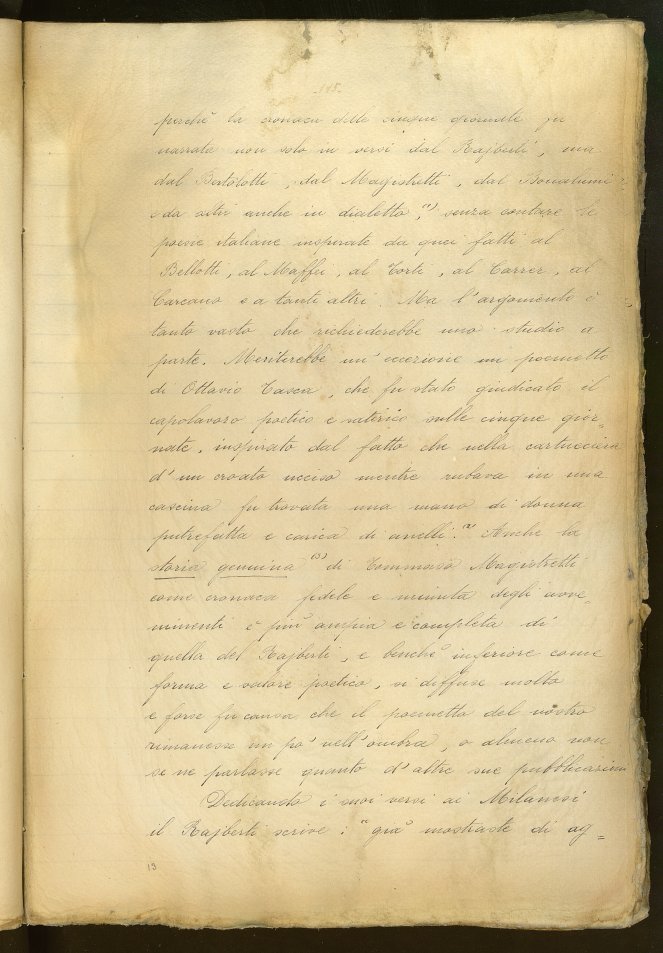 - 145 -
perchè la cronaca delle cinque giornate fu
narrata non solo in versi dal Rajberti, ma
dal Bertolotti, dal Magistretti, dal Bonatumi
e da altri anche in dialetto,⁽¹⁾ senza contare le
poesie italiane inspirate da quei fatti al
Bellotti, al Maffei, al Torti, al Carrer, al
Carcano e a tanti altri. Ma l'argomento è
tanto vasto che richiederebbe uno studio a
parte. Meriterebbe un' eccezione un poemetto
di Ottavio Tasca, che fu stato giudicato il
capolavoro poetico e satirico sulle cinque gior=
nate, inspirato dal fatto che nella cartucciera
d'un croato ucciso mentre rubava in una
cascina fu trovata una mano di donna
putrefatta e carica di anelli.⁽²⁾ Anche la
storia genuina ⁽³⁾ di Tommaso Magistretti
come cronaca fedele e minuta degli avve=
nimenti è più ampia e completa di
quella del Rajberti, e benchè inferiore come
forma e valore poetico, si diffuse molto
e forse fu causa che il poemetto del nostro
rimanesse un po' nell'ombra, o almeno non
se ne parlasse quanto d'altre sue pubblicazioni
Dedicando i suoi versi ai Milanesi
il Rajberti scrive: "già mostraste di ag=
19